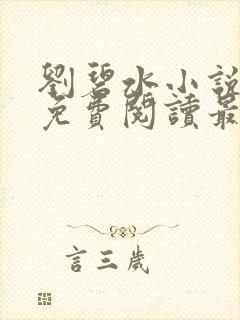 劉碧水小說
免費閱讀最
言三歲